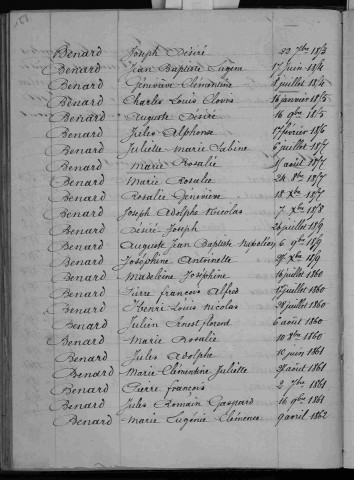 Benard Joseph Désiré 22 7bre 1853
Benard Jean Baptiste Eugène 17 juin 1854
Benard Geneviève Clémentine 8 juillet 1854
Benard Charles Louis Clovis 16 janvier 1855
Benard Auguste Désiré 16 9bre 1855
Benard Jules Alphonse 17 février 1856
Benard Juliette Marie Sabine 6 juillet 1857
Benard Marie Rosalie août 1857
Benard Marie Rosalie 24 8bre 1857
Benard Rosalie Geneviève 18 Xbre 1857
Benard Joseph Adolphe Nicolas 7 Xbre 1858
Benard Désiré Joseph juillet 1859
Benard Auguste Jean Baptiste Napoléon 6 9bre 1859
Benard Joséphine Antoinette Xbre 1859
Benard Madeleine Joséphine 16 juillet 1860
Benard Pierre françois Alfred juillet 1860
Benard Henri Louis Nicolas juillet 1860
Benard Julien Ernest florent 6 août 1860
Benard Marie Rosalie 10 Xbre 1860
Benard Jules Adolphe juin 1861
Benard Marie Clémentine Juliette août 1861
Benard Pierre françois 2 7bre 1861
Benard Jules Romain Gaspard 16 9bre 1861
Benard Marie Eugénie Clémence 9 avril 1862